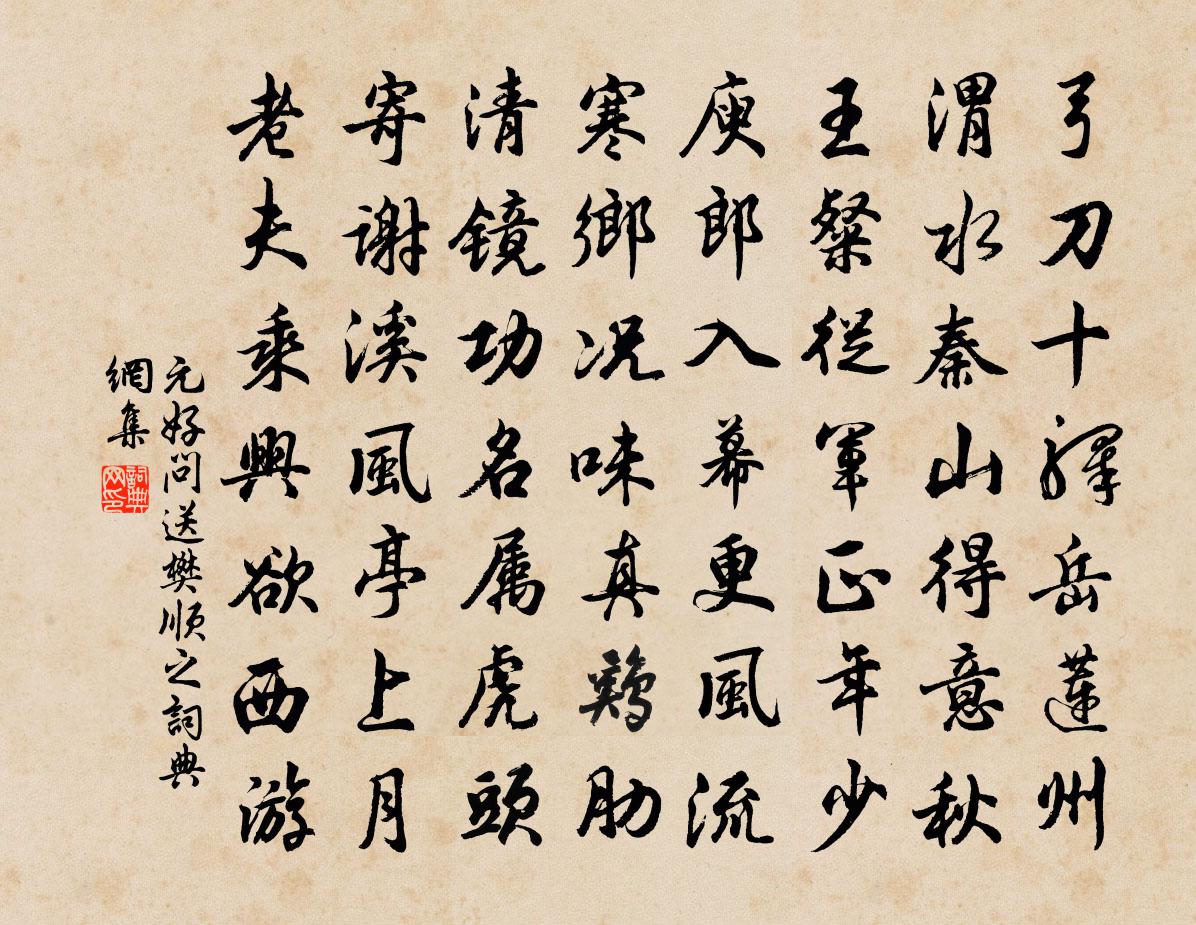 弓刀十驛岳蓮州
渭水秦山得意秋
王粲從軍正年少
庾郎入幕更風流
寒鄉况味真鷄肋
清鏡功名属虎頭
寄謝溪風亭上月
老夫乘興欲西游
元好問送樊順之詞典
網集
詞典
网印